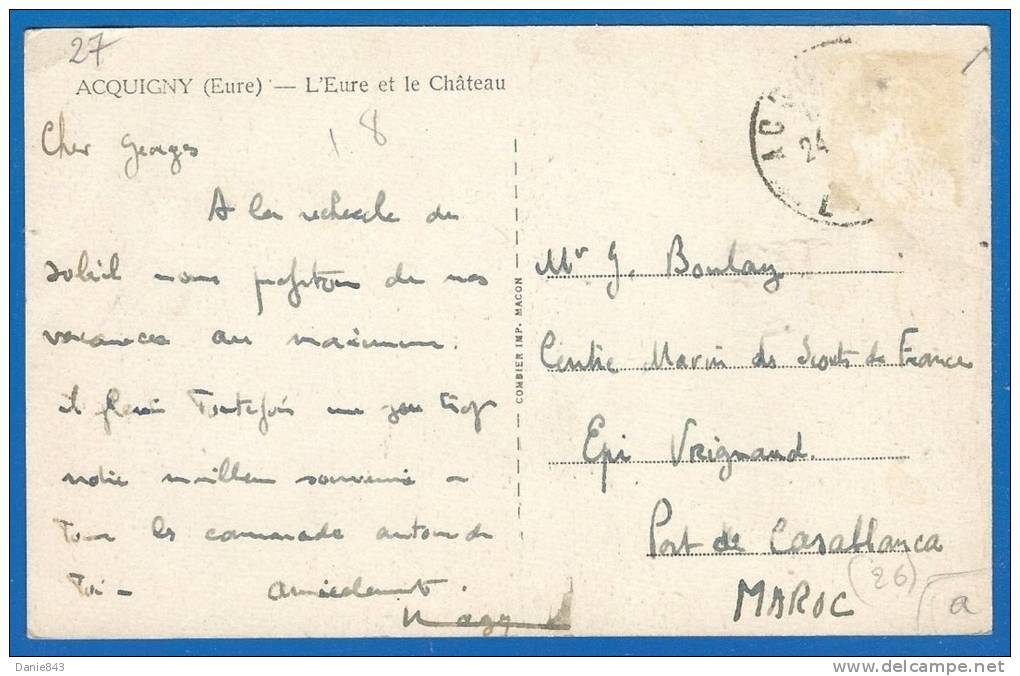 27
ACQUIGNY (Eure) — L'Eure et le Château
1.8
Cher Georges
A la recherche du
soleil nous profitons de nos
vacances au maximum.
il pleut Toutefois un peu trop
notre meilleur souvenir a
Tous les camarades autour de
Toi - amicalement.
COMBIER IMP. MACON
AC
24
Mr G. Boulay
Centre Marin des Scouts de France
Epi Vrignaud.
Port de Casablanca
MAROC
(26)
a
Danie843
www.delcampe.net